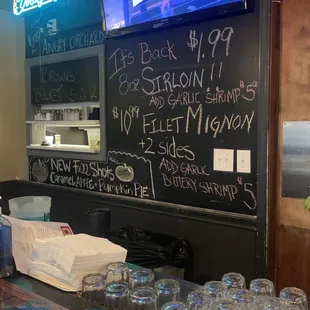 ANGRY ORCHARD
It's Back $1.99
8oz SIRLOIN!!
ADD GARLIC SHRIMP $5
$10.99 FILET MIGNON
+2 sides
ADD GARLIC
BUTTERY SHRIMP $5
NEW Fall Shots
Caramel APPLE + PUMPKIN PIE